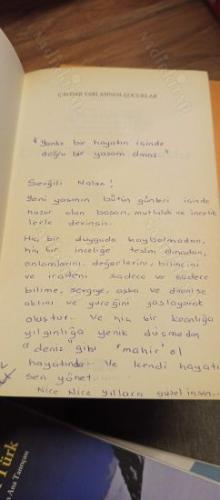 ÇAVDAR TARLASINDA ÇOCUKLAR
"Yanlış bir hayatın içinde
doğru bir yaşam olmaz."
Sevgili Nalan!
Yeni yaşının bütün günleri içinde
huzur olan başarı, mutluluk ve incelik
lerle devinsin.
Hiç bir duyguda kaybolmadan,
hiç bir inceliğe teslim olmadan,
anlamlarını, değerlerini, bilincini
ve iradeni sadece ve sadece
bilime, sevgiye, aşka ve direnişe
aklını ve yüreğini yaslayarak
oluştur. Ve hiç bir
yılgınlığa yenik düşmeden
"deniz" gibi "mahir" ol
hayatında. Ve kendi hayatı
sen yönet.
Nice Nice yıllara güzel insan...
Türk